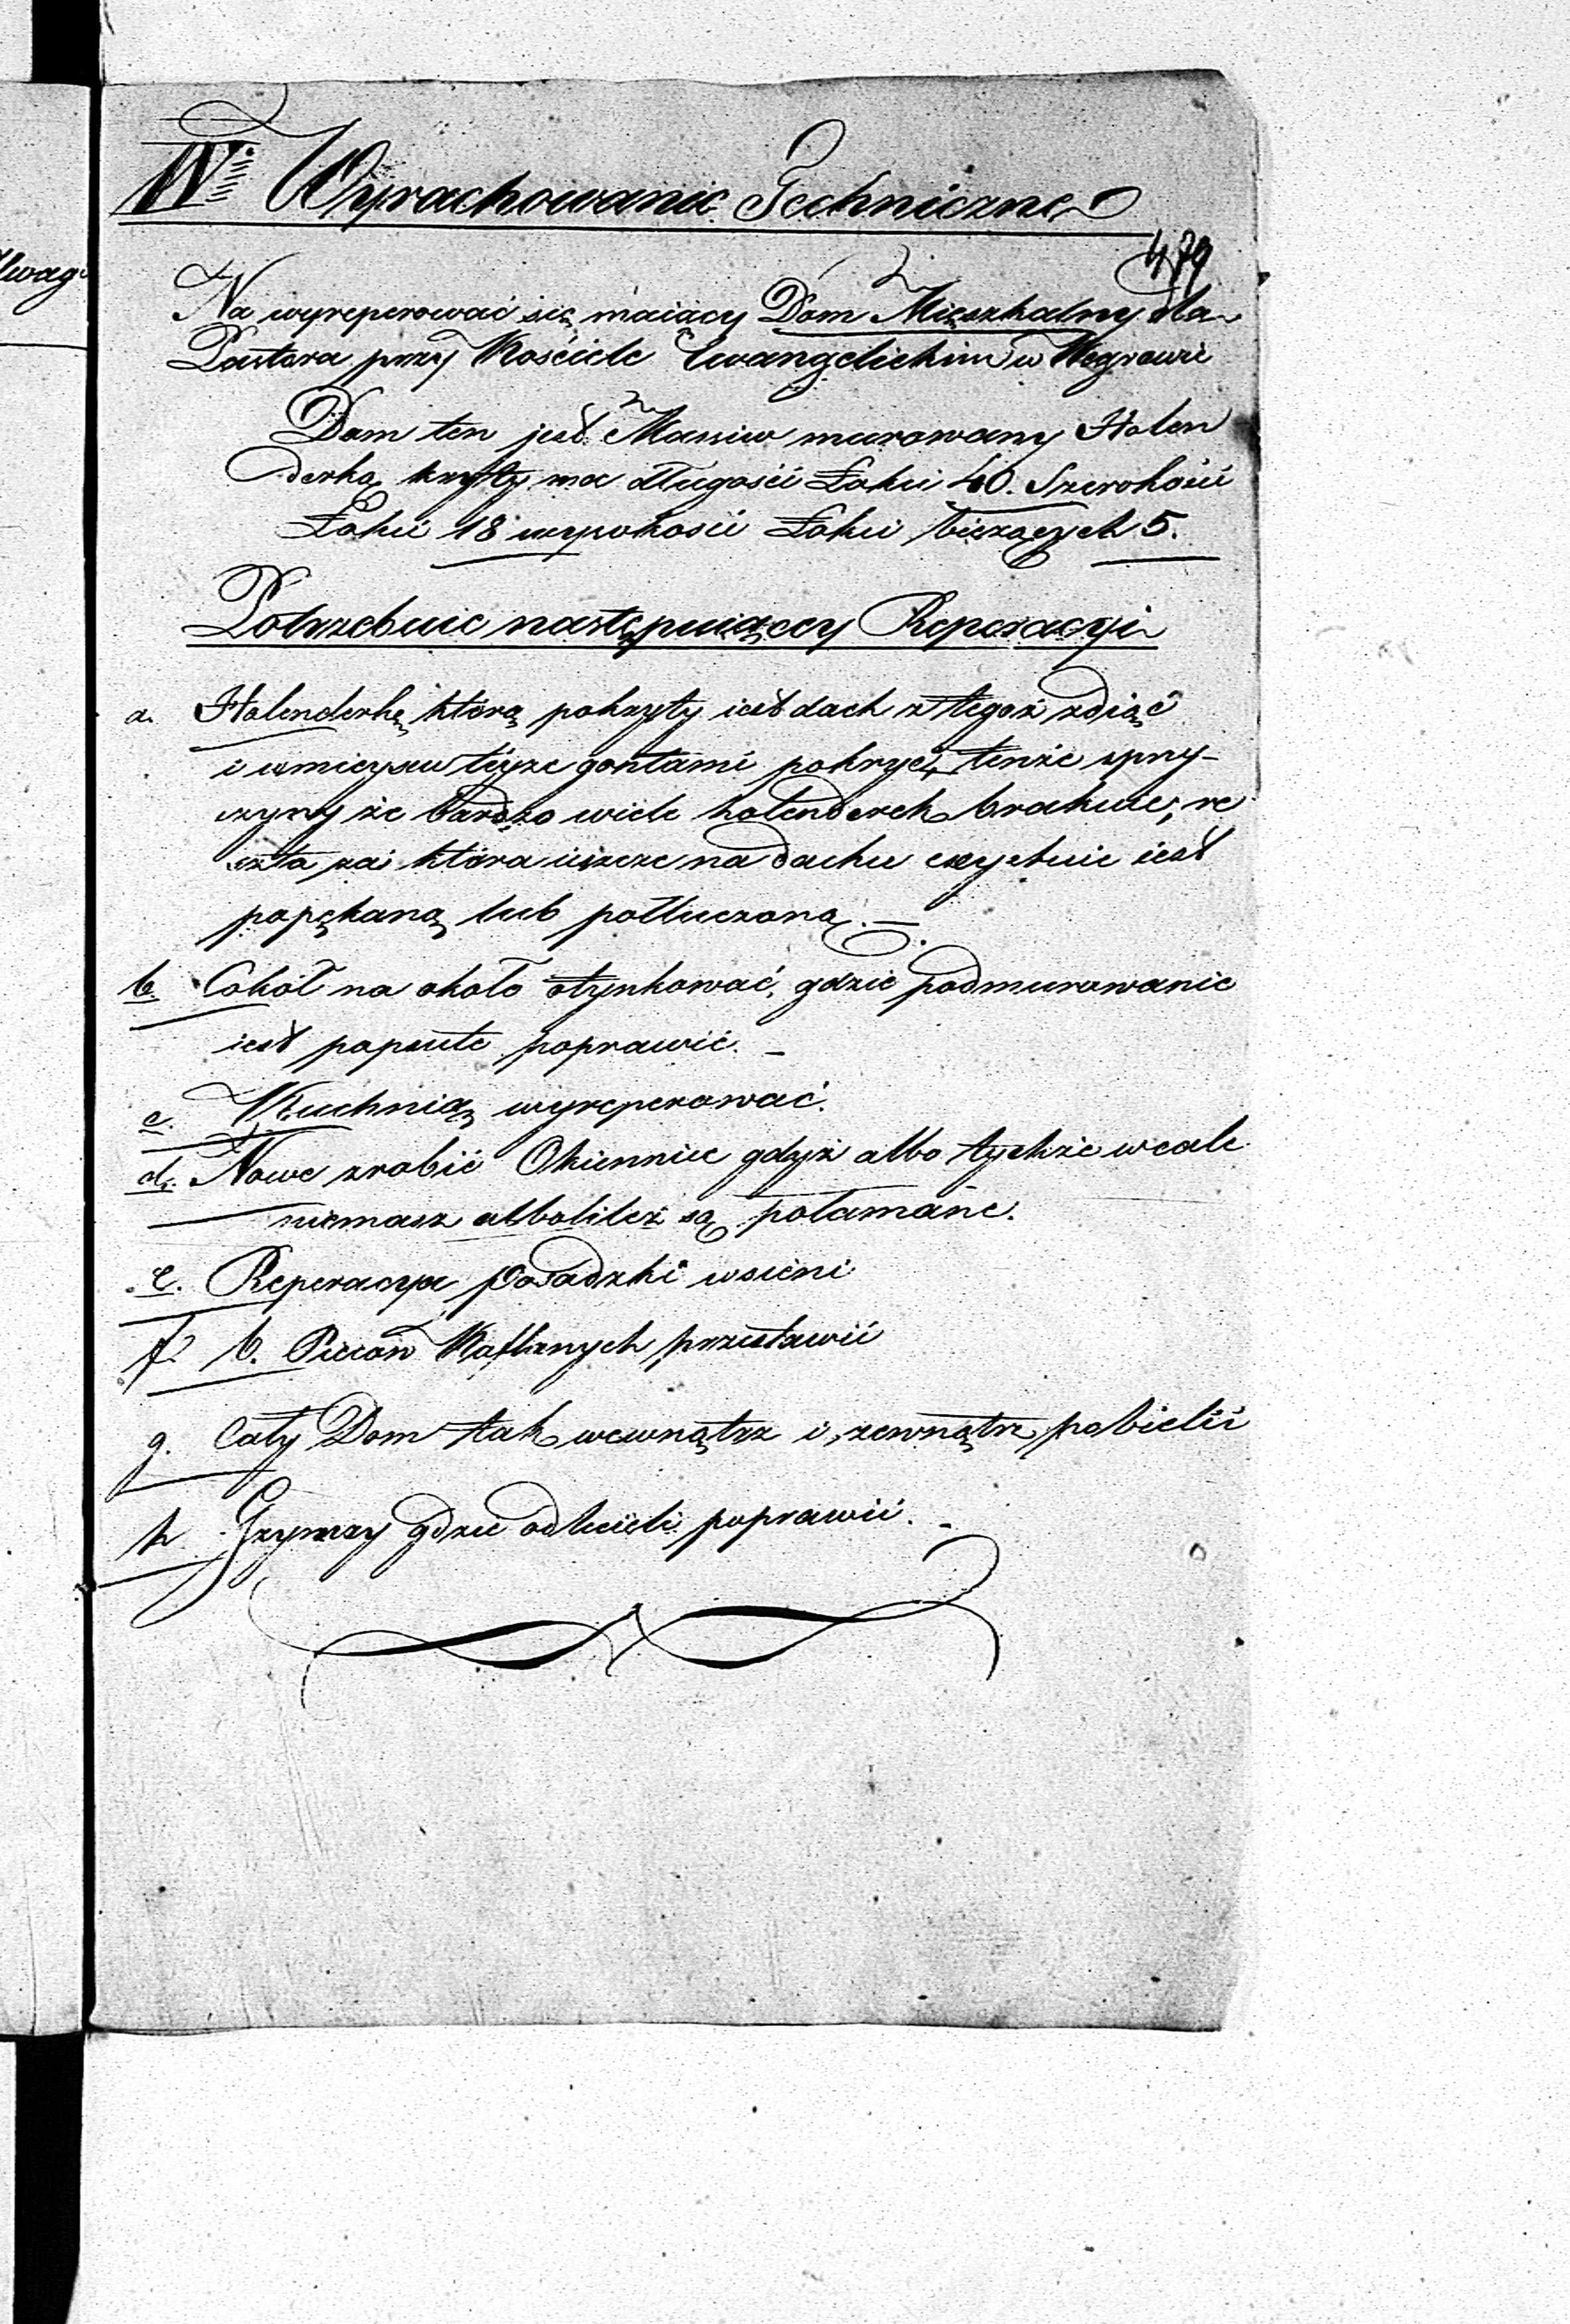 Uwagi
IV. Wyrachowanie Techniczne
479
Na wyreperować się maiący Dom Mieszkalny dla
Pastora przy Kościele Ewangelickim w Węgrowie
Dom ten jest Massiw murowany Holen
derką kryty ma długości Łokci 40. Szerokości
Łokci 18 wysokości Łokci bieżących 5.
Potrzebuie następuiącey Reperacyi
a. Holenderkę którą pokryty iest dach z tegoż zdiąć
i wmieyscu teyże gontami pokryć, tenże z przy-
czyny że bardzo wiele holenderek brakuie, re
szta zaś która ieszcze na dachu exystuie iest
popękaną lub potłuczoną. —
b. Cokół na około otynkować, gdzie podmurowanie
iest popsute poprawić. —
c. Kuchnią wyreperować.
d. Nowe zrobić Okiennice gdyż albo tychże wcale
niemasz albo li też są połamane.
e. Reperacya posadzki w sieni
f. 6. Pieców Kaflanych przestawić
g. Cały Dom tak wewnątrz i zewnątrz pobielić
h. Gzymsy gdzie odlecieli poprawić. -